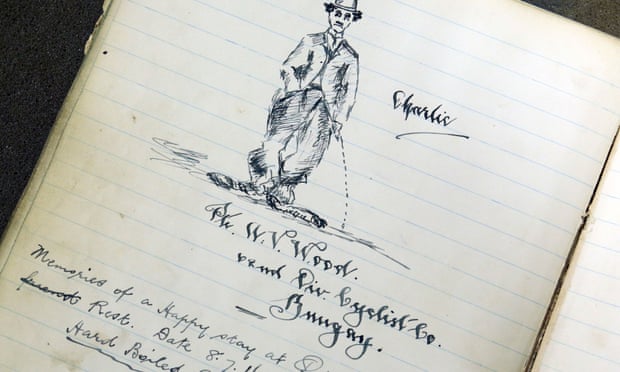 Charlie
W. V. Wood.
Div Cyclist Co.
Bungay.
Memories of a Happy stay at
Rest. Date 8. 7. 1
Hard Boiled